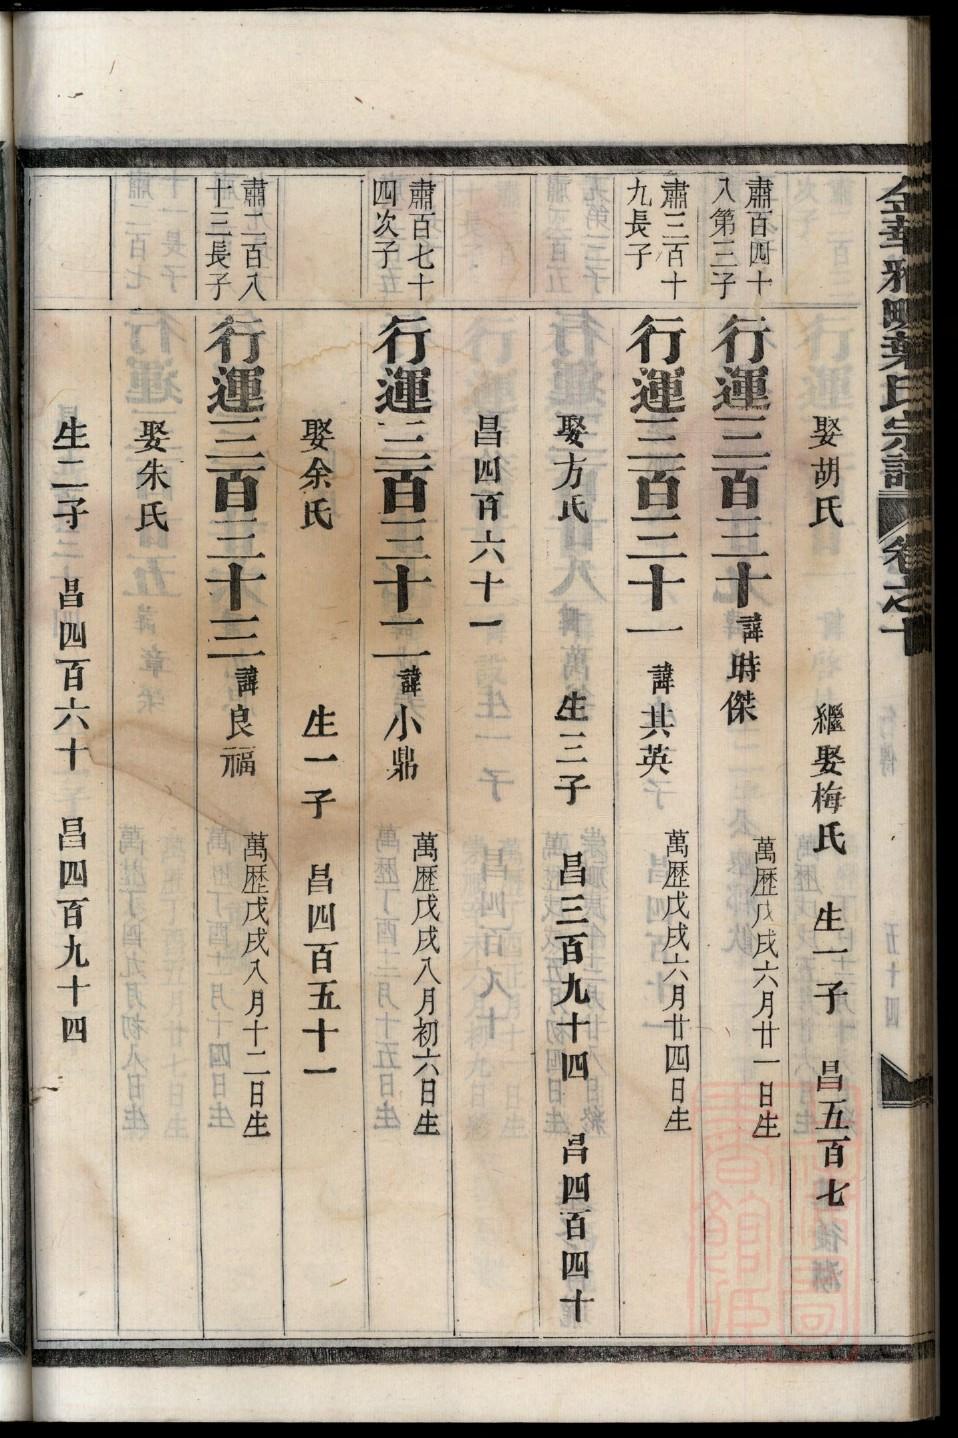 金華雅畈葉氏宗譜 卷之十
娶胡氏 繼娶梅氏 生一子 昌五百七
肅百四十
八第三子
行運三百三十 諱時傑 萬歷戊戌六月廿一日生
肅三百十
九長子
行運三百三十一 諱共英 萬歷戊戌六月廿四日生
娶方氏 生三子 昌三百九十四 昌四百四十
昌四百六十一
肅百七十
四次子
行運三百三十二 諱小鼎 萬歷戊戌八月初六日生
娶余氏 生一子 昌四百五十一
肅二百八
十三長子
行運三百三十三 諱良福 萬歷戊戌八月十二日生
娶朱氏
生二子 昌四百六十 昌四百九十四